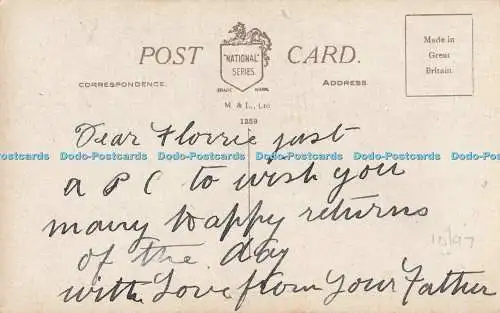 POST CARD.
"NATIONAL"
SERIES.
TRADE MARK.
CORRESPONDENCE.
ADDRESS.
M. & L., Ltd
1259
Made in
Great
Britain.
Dear Florrie just
a P C to wish you
many happy returns
of the day
with Love from Your Father
10/97
Dodo-Postcards Dodo-Postcards Dodo-Postcards Dodo-Postcards Dodo-Postcards Dodo-Postcards